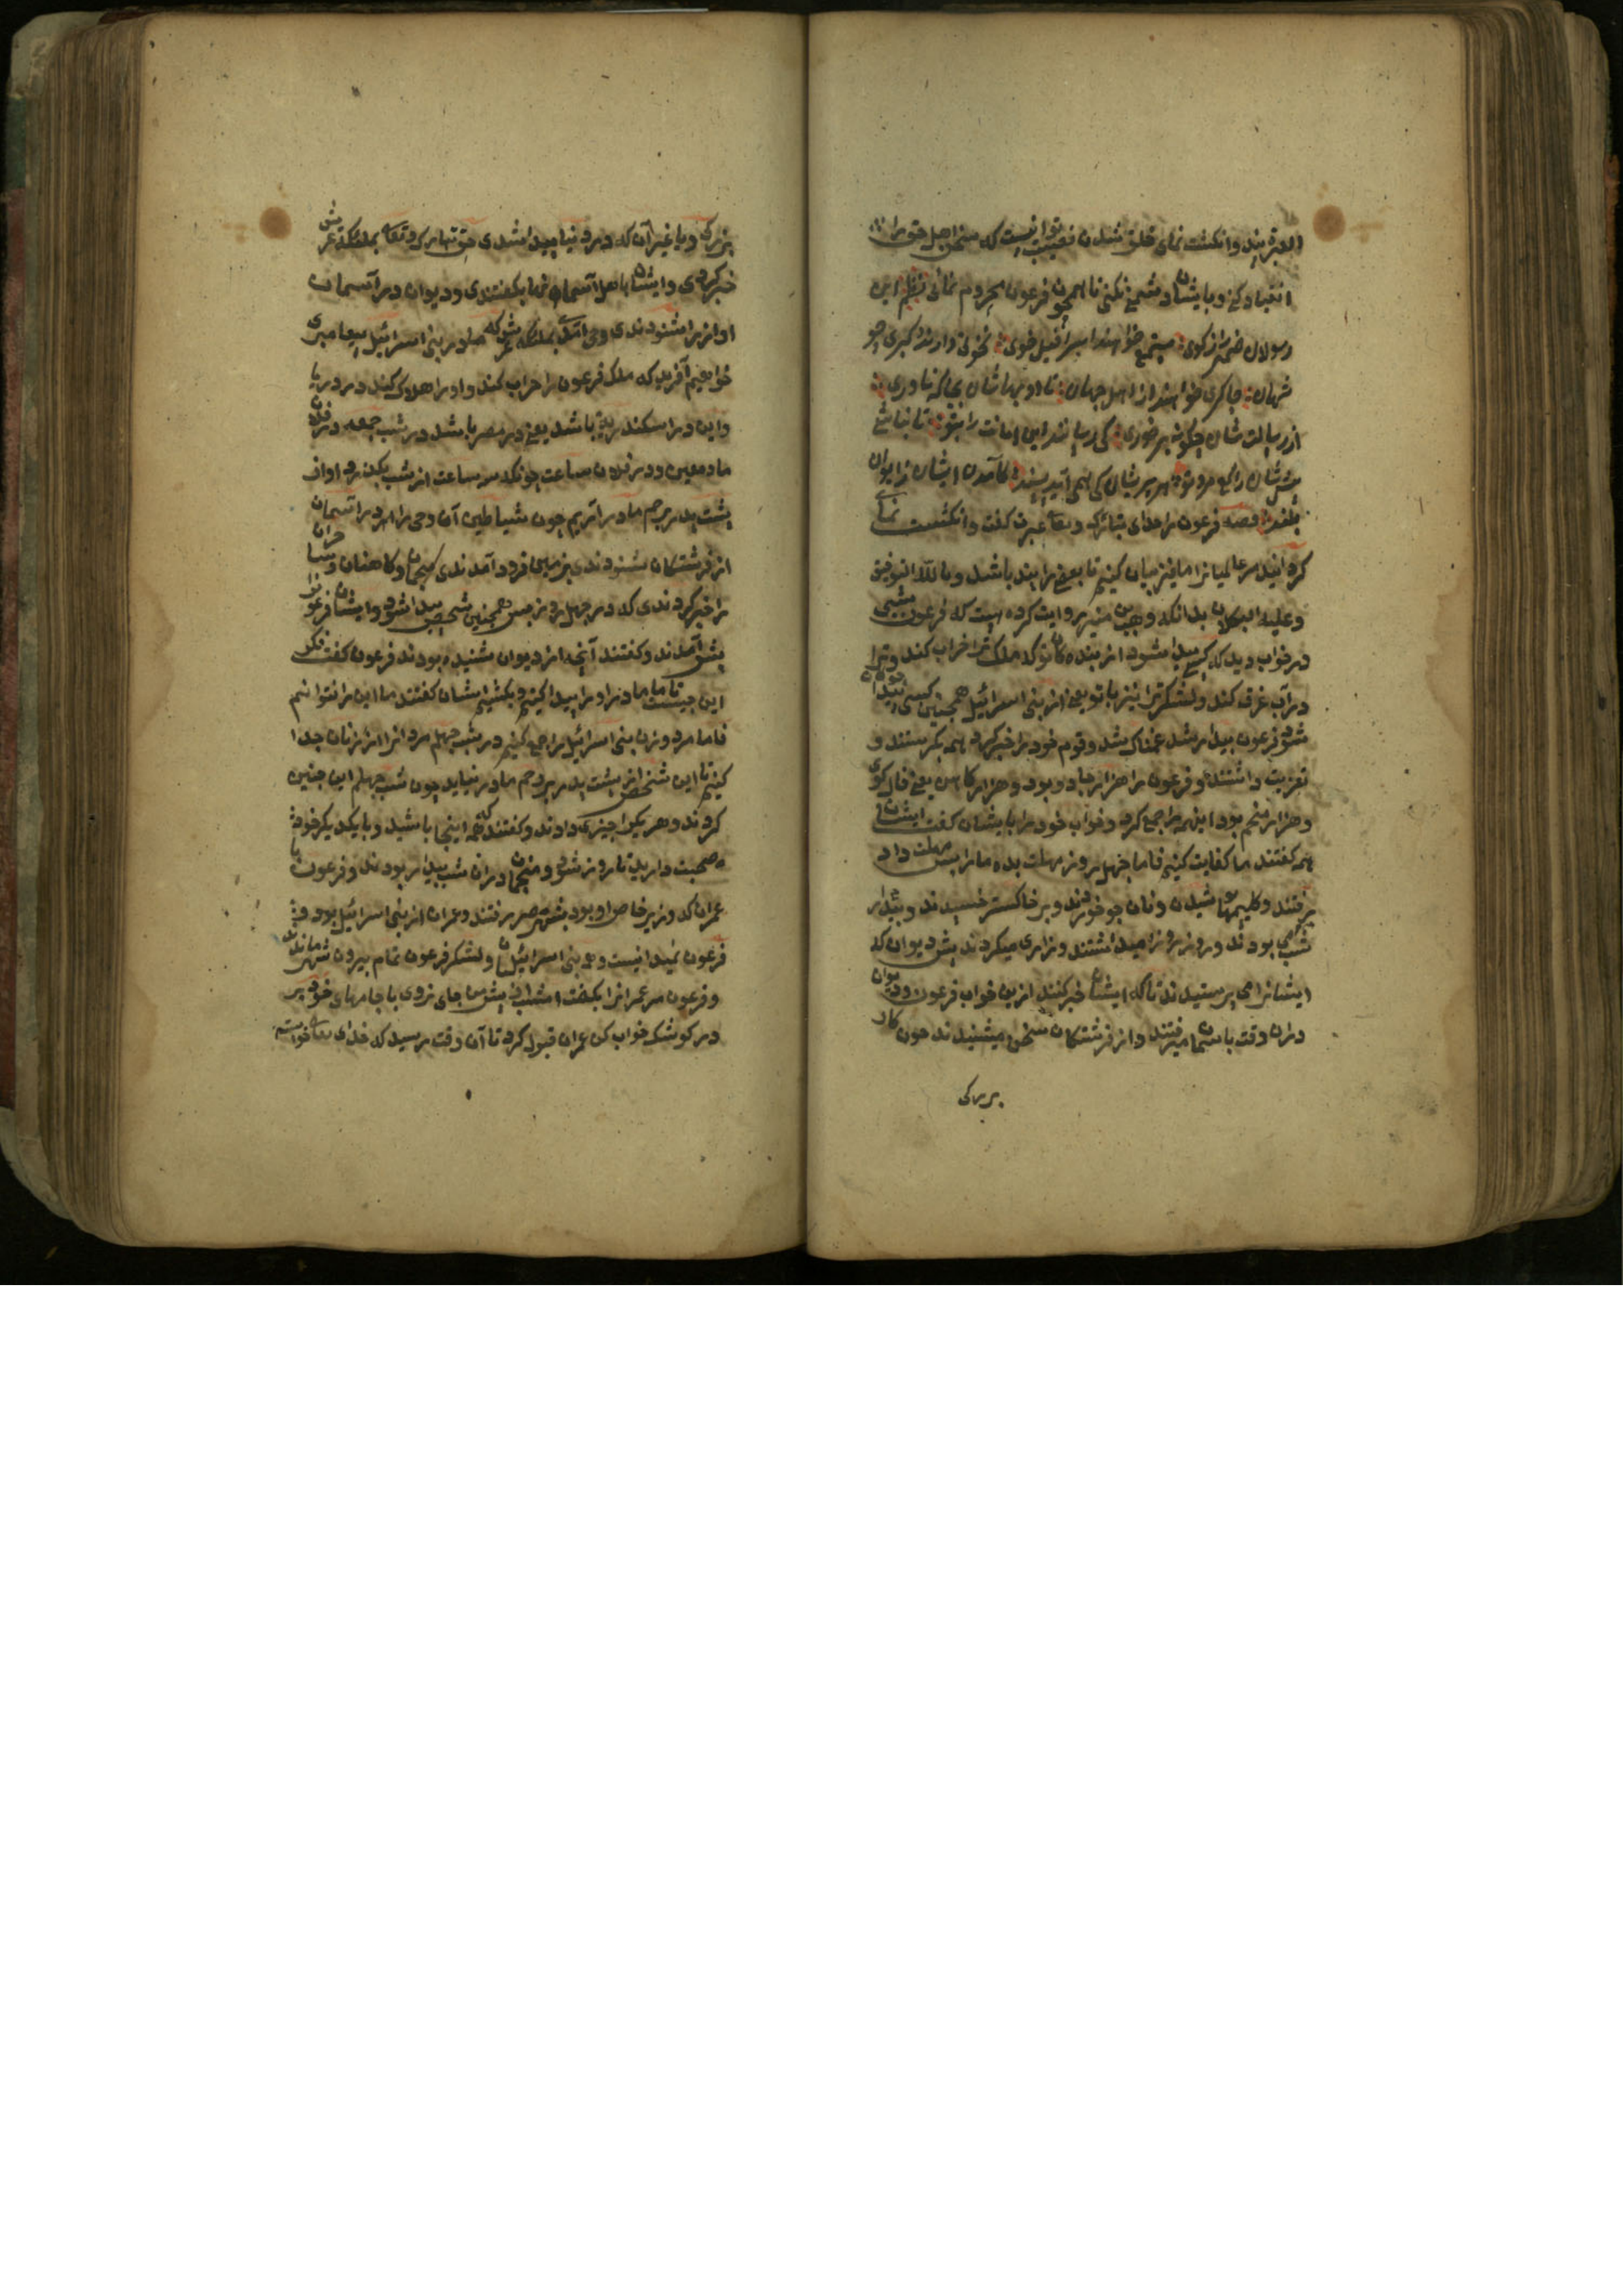 انقیاد کنی و با ایشان دشمنی نکنی تا همچون فرعون محروم نمانی نظم این
رسولان ضمیر راز کوی مستمع خواهند اسرافیل خوی نخوتی دارند و کبری چو
شهان چاکری خواهند از اهل جهان تا ادبهاشان بجاکه ناوری
از رسالت شان چکونه برخوری کی رسانند این امانت را بتو تا نباشی
پیش شان راکع دوتو هر ادبشان کی همی آید پسند کامدند ایشان ز ایوان
بلند قصه فرعون را خدای تبارک و تعالی عبرت کفت و انکشت نمای
کردانید مر عالمیانرا ما نیز بیان کنیم تا بعضی را پند باشد و بالله التوفیق
و علیه التکلان بدانکه وهب بن منبه روایت کرده است که فرعون شبی
در خواب دید که کسی پیدا شود از بنده کان تو که ملک ترا خراب کند و ترا
در آب غرق کند و لشکر ترا نیز با تو یعنی از بنی اسرائیل همچنین کسی پیدا خواهد
شد فرعون بیدار شد غمناک شد و قوم خود را خبر کرد همه بکریستند و
تعزیت داشتند و فرعون را هزار جادو بود و هزار کاهن یعنی فال کوی
و هزار منجم بود اینهمه را جمع کرد و خواب خود را با ایشان کفت ایشان
همه کفتند ما کفایت کنیم فاما چهل روز مهلت بده ما را پس مهلت داد
برفتند و کلیمها پوشیدند و نان جو خوردند و بر خاکستر خسپیدند و بیدار
شب می بودند و روز روزه میداشتند و زاری میکردند پیش دیوان که
ایشانرا می پرستیدند تا که ایشان خبر کنند ازین خواب فرعون و دیوان
دران وقت باسمان میرفتند و از فرشتکان سخن میشنیدند چون کار
بزرکی
بزرکی و یا غیر آن که در دنیا پیدا شدی حق تبارک و تعالی بملائکه عرش
خبر کردی و ایشان باهل آسمان بکفتندی و دیوان در آسمان
اواز را شنودندی وحی آمد بملائکه عرش که ما در بنی اسرائیل پیغامبری
خواهیم آفرید که ملک فرعون را خراب کند و او را هلاک کند در دریا
و این در اسکندریه باشد یعنی در مصر باشد در شب جمعه در فلان
ماه معین و در فلان ساعت چونکه سه ساعت از شب بکذرد او از
پشت پدر برحم مادر آریم چون شیاطین آن وحی را در آسمان
از فرشتکان شنودندی بزمین فرود آمدندی منجمان و کاهنان و ساحران
را خبر کردندی که در چهل روز پس همچنین شخص پیدا شود و ایشان فرعونرا
پیش آمدند و کفتند آنچه از دیوان شنیده بودند فرعون کفت فکر
این چیست تا ما مادر او را پیدا کنیم و بکشیم ایشان کفتند ما این را نتوانیم
فاما مرد و زن بنی اسرائیل را جمع کنیم در شب چهلم مردانرا از زنان جدا
کنیم تا این شخص از پشت پدر برحم مادر نیاید چون شب چهلم این چنین
کردند و هر یک را چیزی دادند و کفتند که اینجا باشید و با یکدیکر خود
صحبت دارید تا روز شود و منجمان دران شب بیدار بودند و فرعون با
عمران که وزیر خاص او بود بشهر مصر رفتند و عمران از بنی اسرائیل بود و
فرعون نمیدانست و بنی اسرائیلیان و لشکر فرعون تمام بیرون شهر ماندند
و فرعون مر عمرانرا بکفت امشب پیش من جای نروی با جامهای خود بر
در کوشک خواب کن عمران قبول کرد تا آن وقت رسید که خدای تعالی خواسته